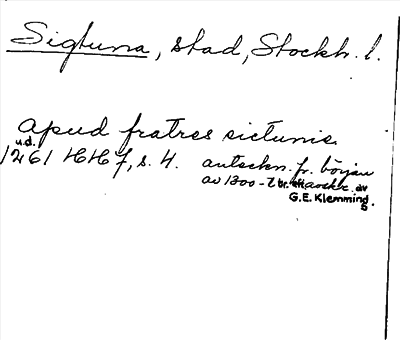 Sigtuna, stad, Stockh. l.
apud fratres sictunis
u.d.
1261 HH f, s. 4. anteckn. fr. början
av 1300-t br. av
G.E. Klemming